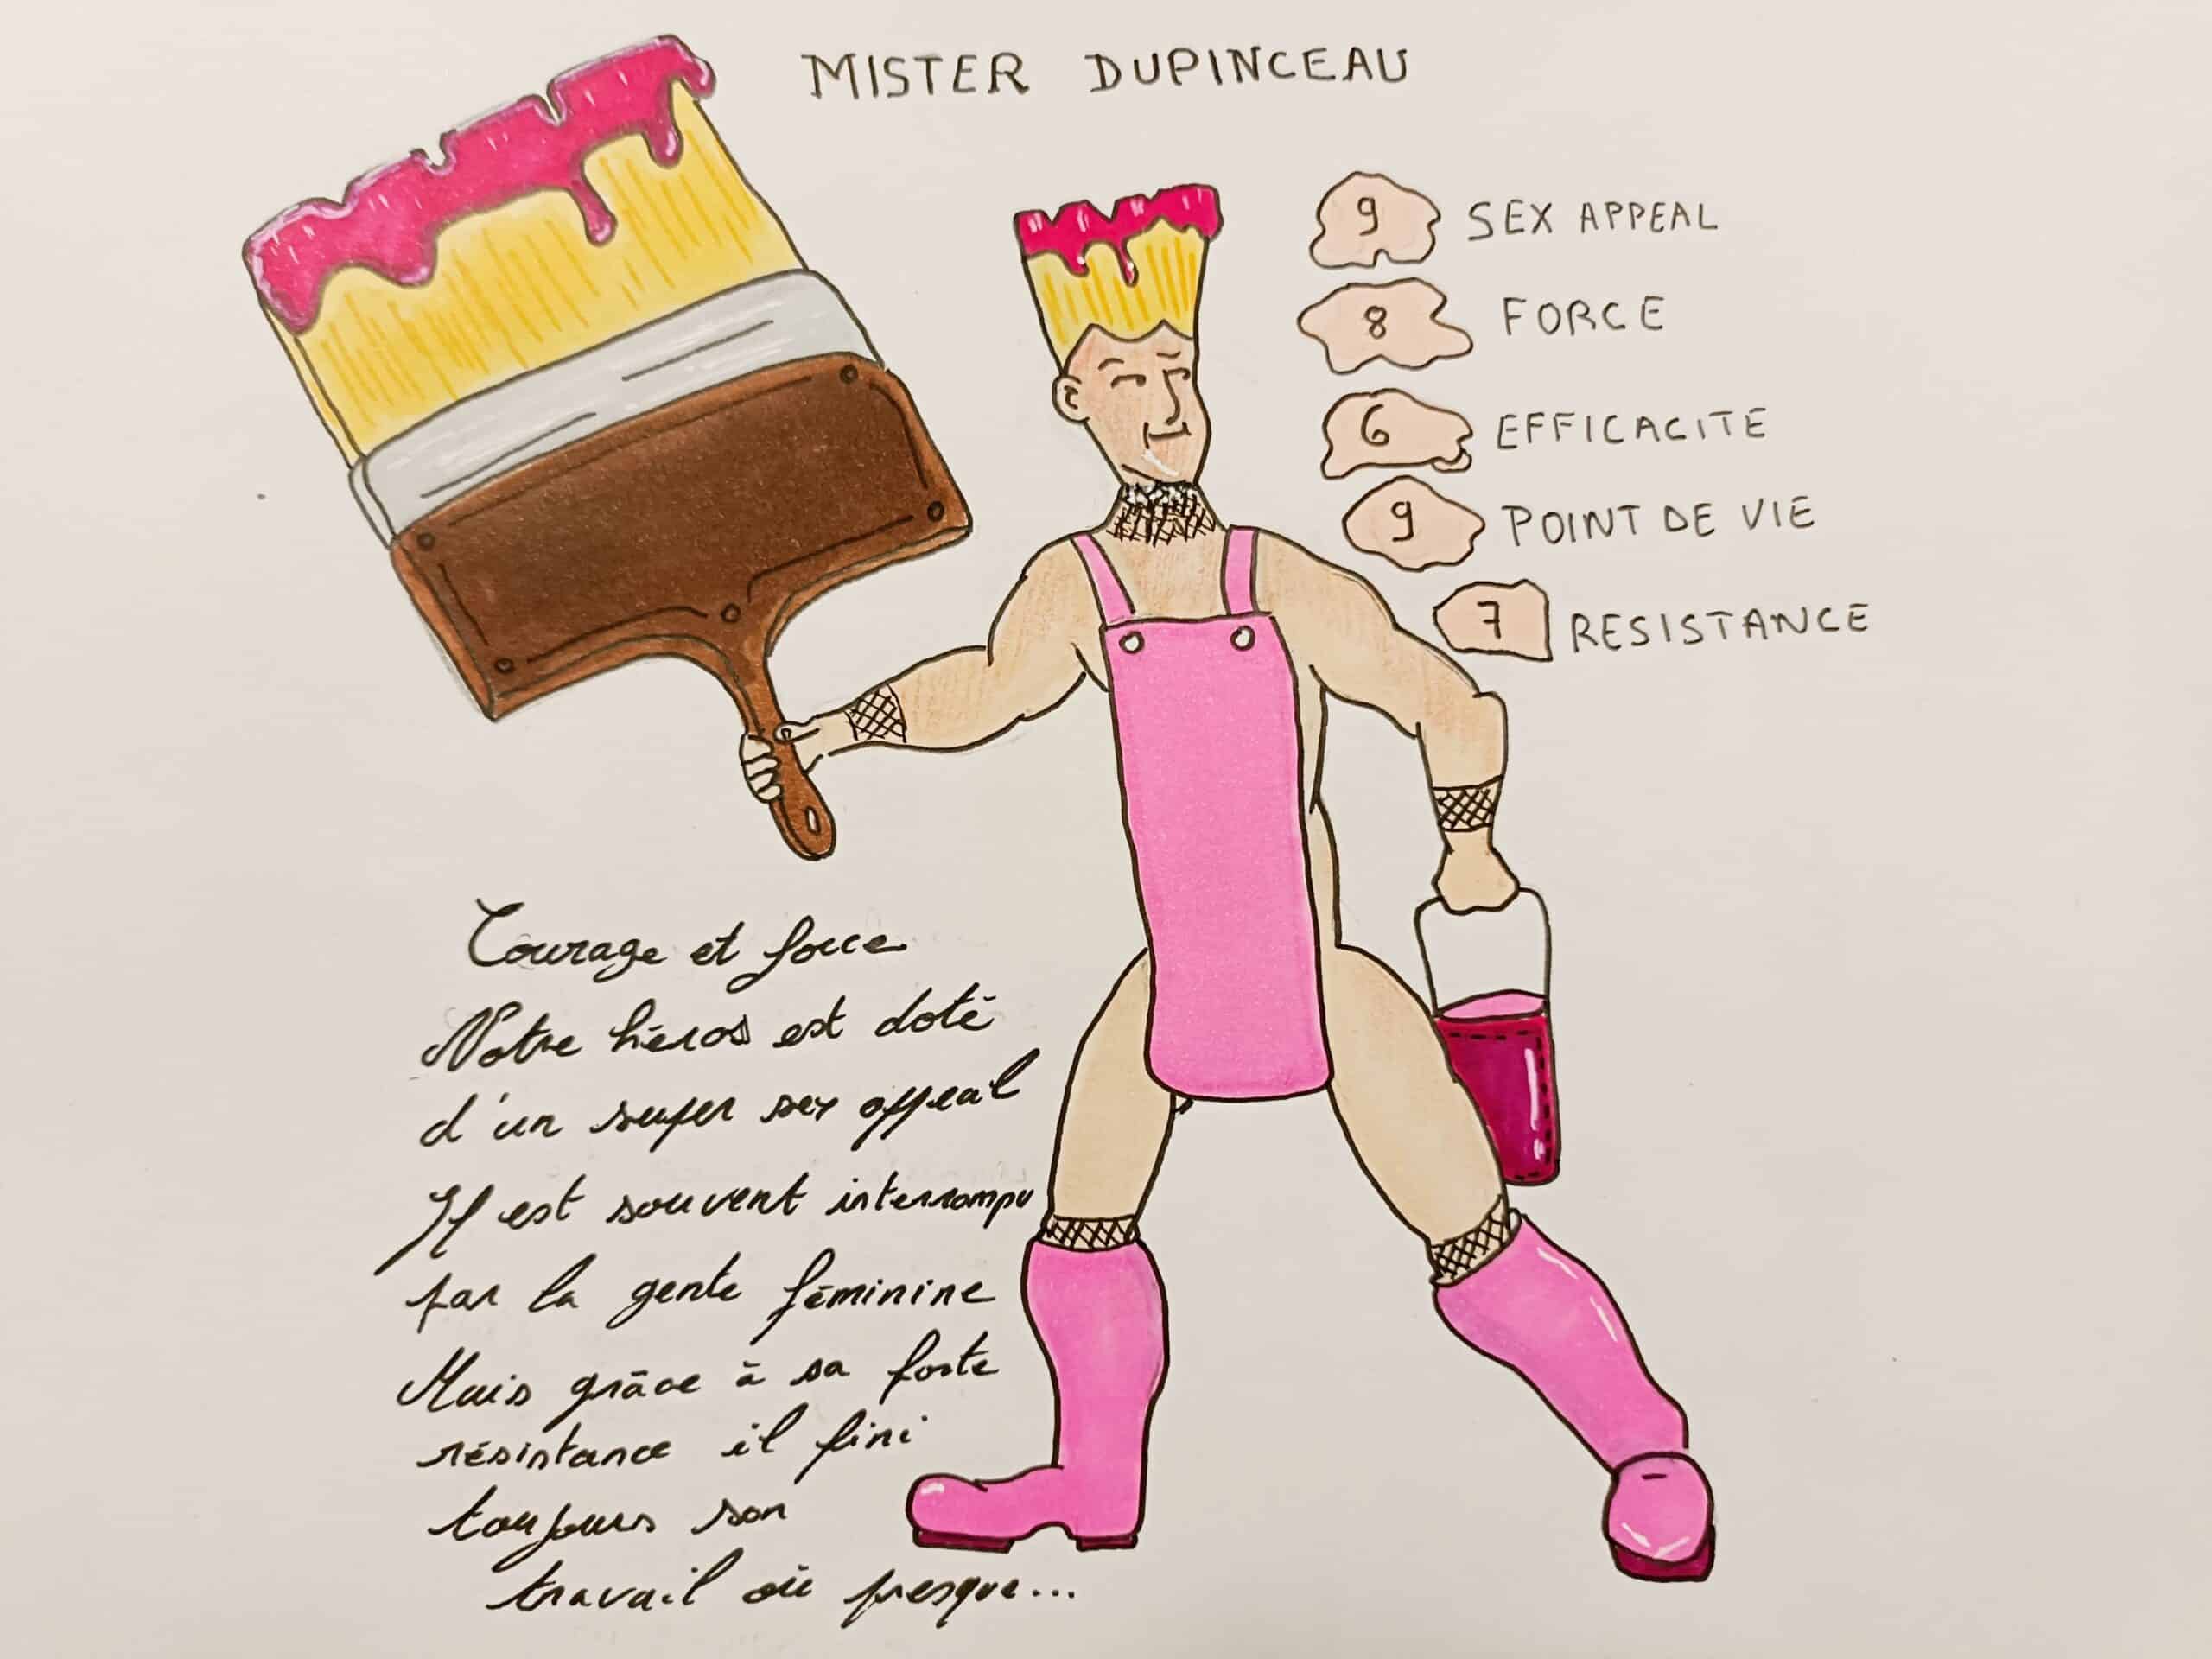 MISTER DUPINCEAU
9 SEX APPEAL
8 FORCE
6 EFFICACITE
9 POINT DE VIE
7 RESISTANCE
Courage et force
Notre héros est doté
d'un super sex appeal
Il est souvent interrompu
par la gente féminine
Mais grâce à sa forte
résistance il fini
toujours son
travail où presque...